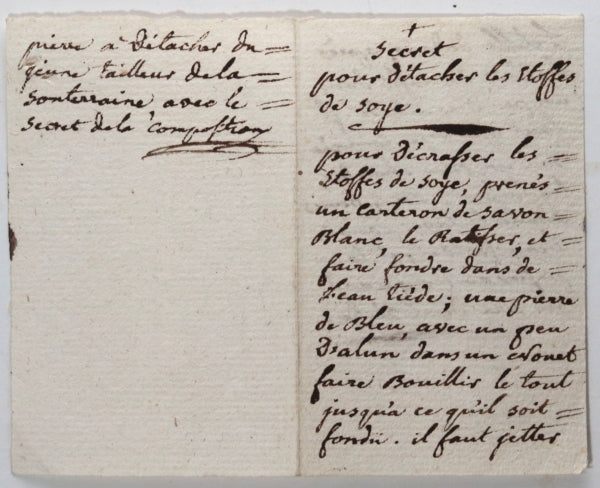 pierre à Détacher du =
jeune tailleur de la =
Souterraine avec le =
Secret de la Composition
+
Secret
pour détacher les Etoffes
de soye.
pour Décrasser les =
Etoffes de Soye, prenés =
un carteron de savon =
Blanc, le Ratisser, et =
faire fondre dans de =
Leau tiède; une pierre
de Bleu, avec un peu
Dalun dans un
faire Bouillir le tout
jusqu'a ce qu'il soit =
fondü. il faut jetter